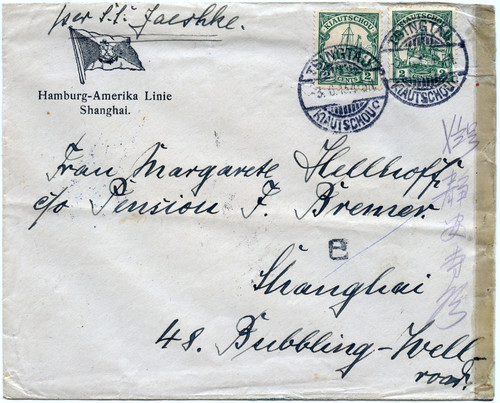 per S.S. Jaeschke.
KIAUTSCHOU
2 CENTS 2
KIAUTSCHOU
2 2
TSINGTAU
KIAUTSCHOU
TSINGTAU
KIAUTSCHOU
Hamburg-Amerika Linie
Shanghai.
Frau Margarete Hellhoff
c/o Pension F. Bremer.
Shanghai
48. Bubbling-Well-
road.